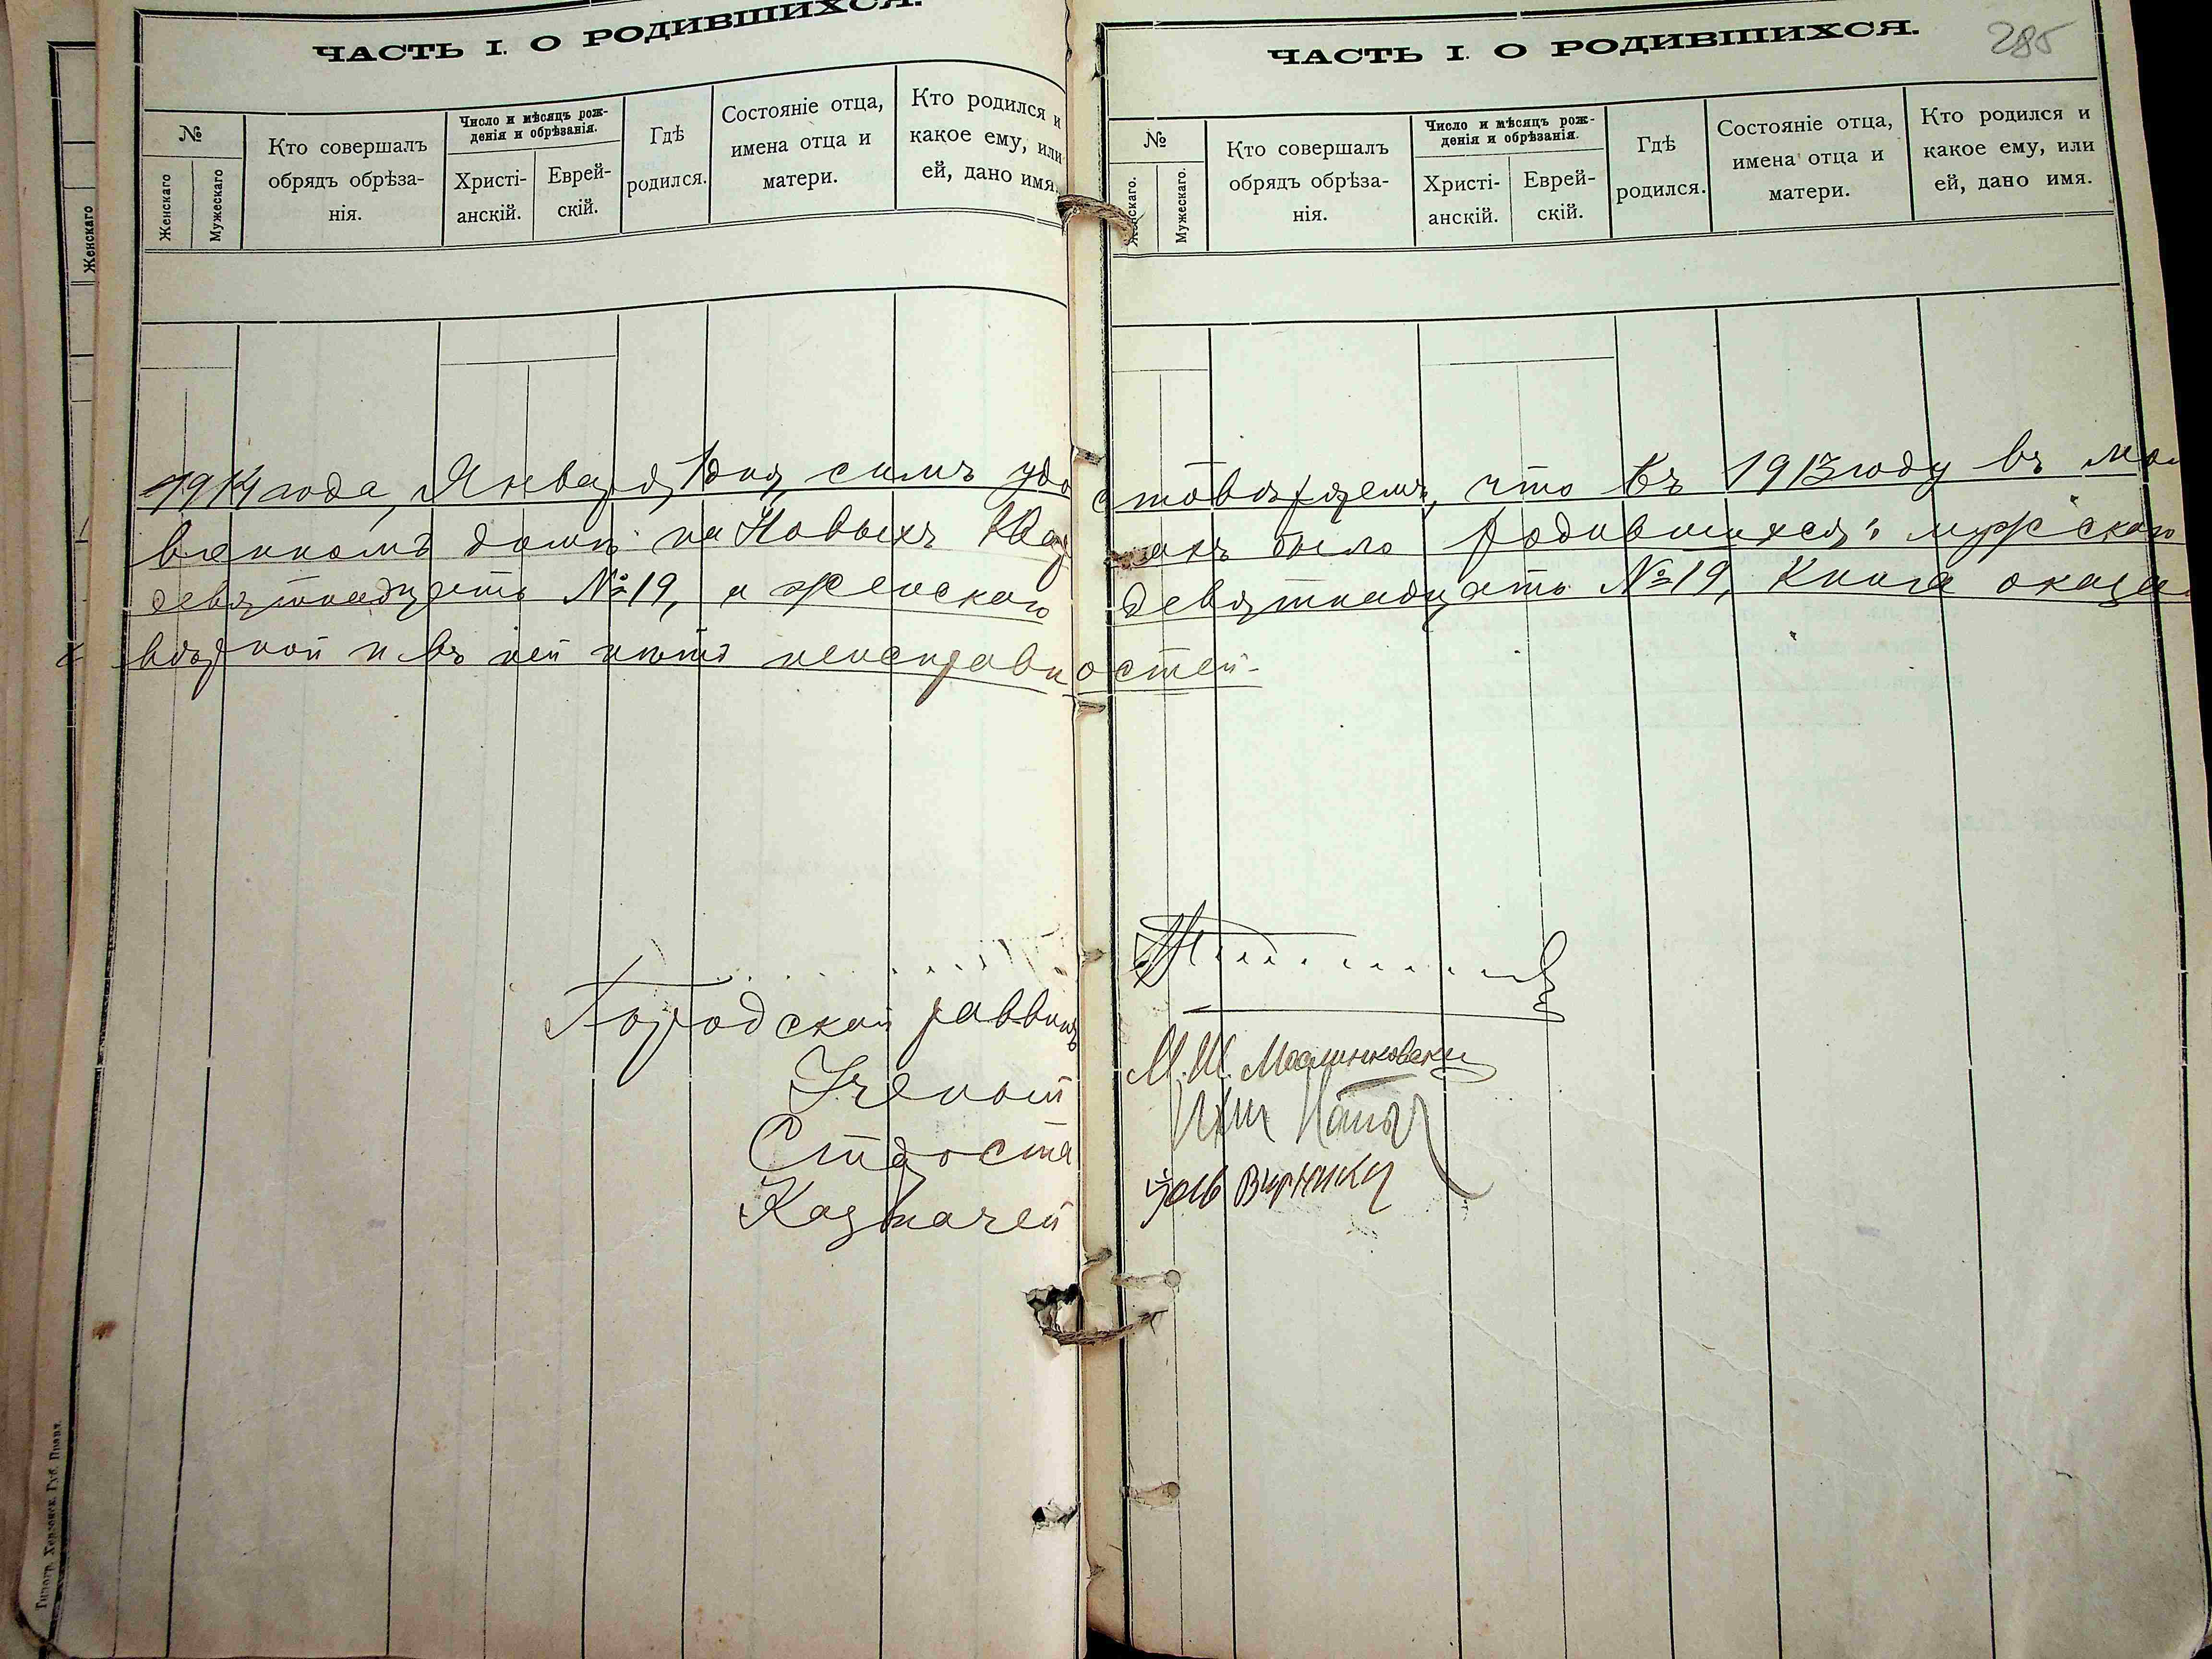 ЧАСТЬ I. О РОДИВШИХСЯ.
№
Женскаго
Мужескаго
Кто совершалъ
обрядъ обрѣза-
нія.
Число и мѣсяцъ рож-
денія и обрѣзанія.
Христі-
анскій.
Еврей-
скій.
Гдѣ
родился.
Состояніе отца,
имена отца и
матери.
Кто родился и
какое ему, или
ей, дано имя.
ЧАСТЬ I. О РОДИВШИХСЯ.
285
№
Женскаго.
Мужескаго.
Кто совершалъ
обрядъ обрѣза-
нія.
Число и мѣсяцъ рож-
денія и обрѣзанія.
Христі-
анскій.
Еврей-
скій.
Гдѣ
родился.
Состояніе отца,
имена отца и
матери.
Кто родился и
какое ему, или
ей, дано имя.
Женскаго
1914 года, Января 1 дня, симъ удостовѣряемъ, что въ 1913 году въ мол
венномъ домѣ на Новыхъ было родившихся: мужскаго
девятнадцать №19, а женскаго девятнадцать №19, Книга оказа
вѣрной и въ ней нѣтъ неисправностей.
Городской раввинъ
Ученый М. Ш.
Староста
Казначей
Типогр. Херсонск. Губ. Правл.